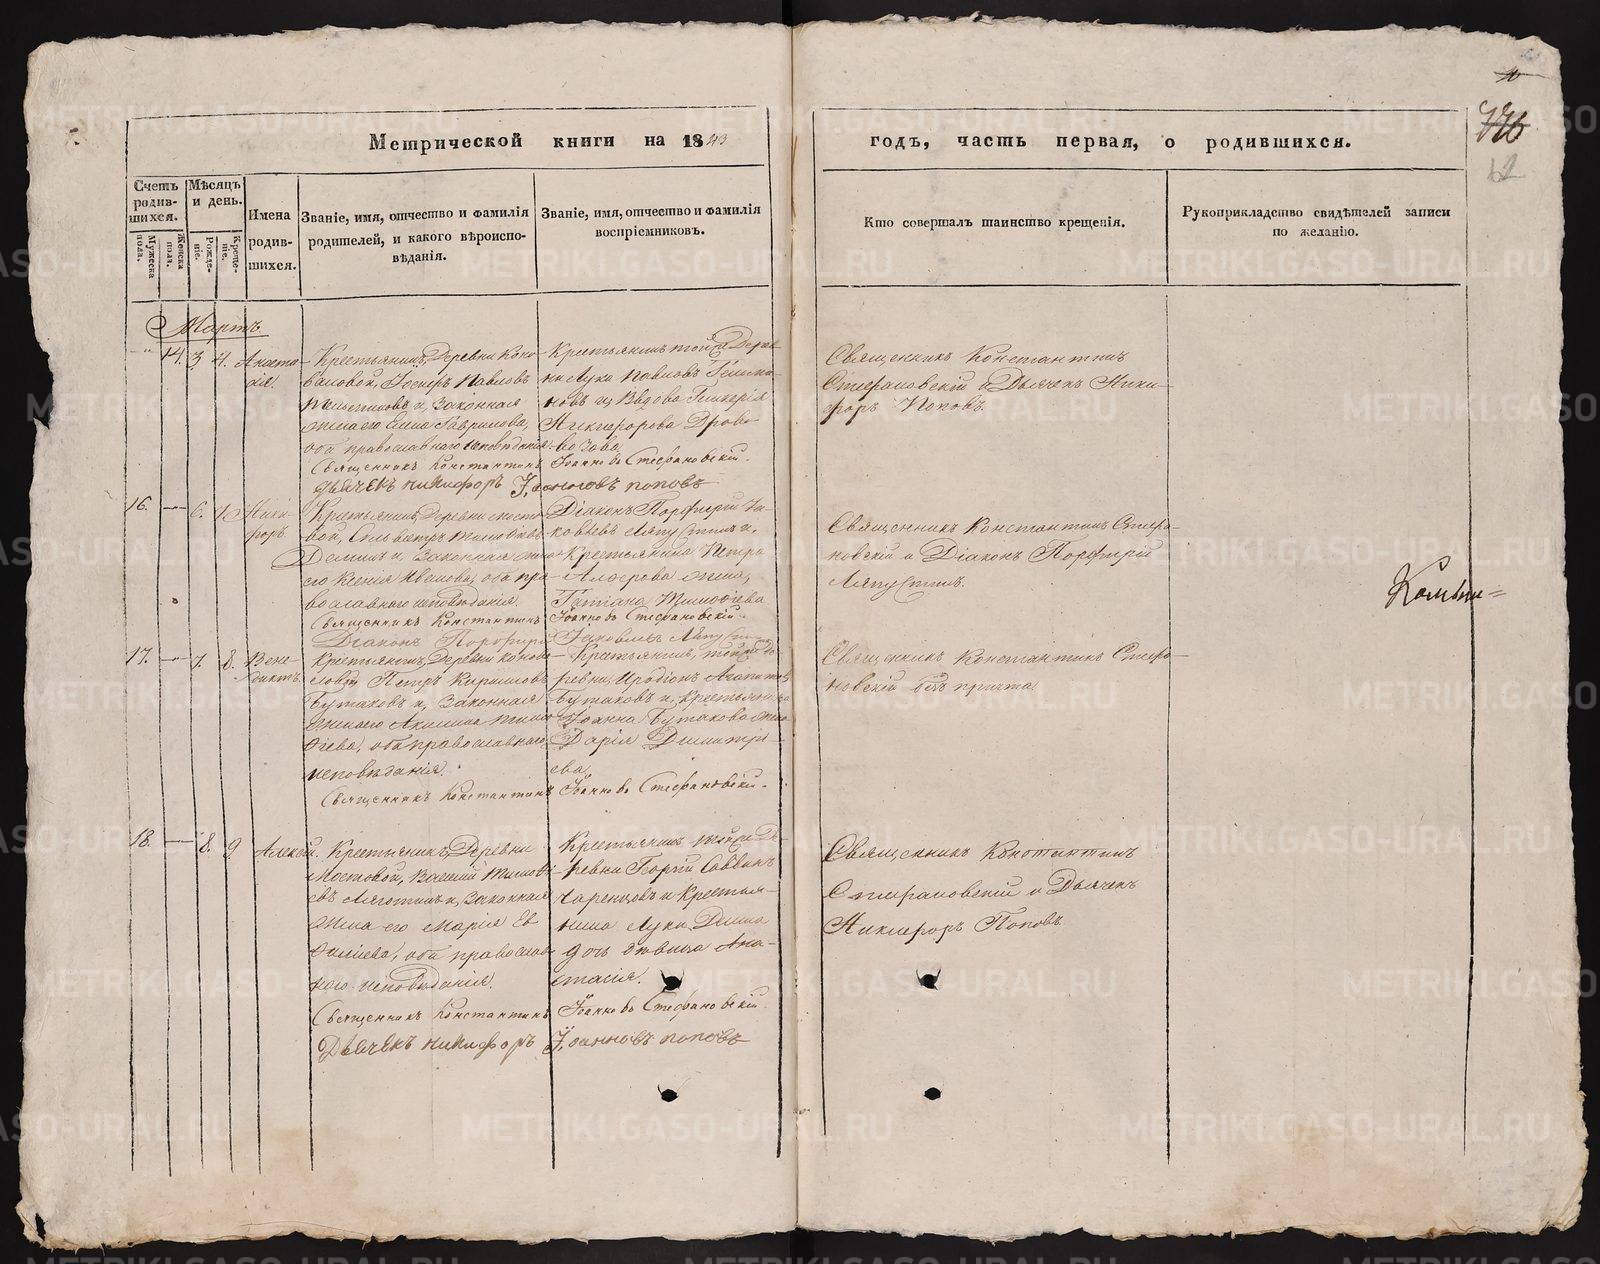 Метрической книги на 1843
годъ, часть первая, о родившихся.
Счетъ родившихся.
Мужеска пола.
Женска пола.
Мѣсяцъ и день.
Рожденіе.
Крещеніе.
Имена родившихся.
Званіе, имя, отчество и фамилія
родителей, и какого вѣроиспо-
вѣданія.
Званіе, имя, отчество и фамилія
воспріемниковъ.
Кто совершалъ таинство крещенія.
Рукоприкладство свидѣтелей записи
по желанію.
Мартъ
14. 3 4. Анаста-
сія.
Крестьянинъ Деревни Коно-
валовой, Іосифъ Павловъ
и, Законная
жена его Елена Гаврилова,
оба православнаго исповѣданія.
Священникъ Константинъ
Дьячекъ Никифоръ
Крестьянинъ тойже Дерев-
ни Лука Павловъ
новъ и, Вдова Гликерія
Никифорова
Іоанновъ Стефановскій.
Іоанновъ Поповъ
Священникъ Константинъ
Стефановскій и Дьячекъ Ники-
форъ Поповъ.
16. — 6. 10 Ники-
форъ
Крестьянинъ Деревни Мосто-
вой,
Деминъ и, Законная жена
его Ксенія Иванова, оба пра-
вославнаго исповѣданія.
Священникъ Константинъ
Діаконъ Порфирій
Діаконъ Порфирій Іа-
ковлевъ Ляпустинъ и,
Крестьянина Петра
Алферова жена,
Татіана Тимофіева
Іоанновъ Стефановскій.
Іаковлевъ Ляпустинъ
Священникъ Константинъ Стефа-
новскій и Діаконъ Порфирій
Ляпустинъ.
17. — 7. 8. Вене-
диктъ.
Крестьянинъ, Деревни Конова-
ловой Петръ Кириловъ
Бутаковъ и, Законная
жена его Акилина Тимо-
фіева, оба православнаго
исповѣданія.
Священникъ Константинъ
Крестьянинъ, тойже де-
ревни, Иродіонъ Агапитовъ
Бутаковъ и, Крестьянина
Іоанна Бутакова жена
Дарія Димитрі-
ева.
Іоанновъ Стефановскій.
Священникъ Константинъ Стефа-
новскій безъ причта
18. — 8. 9 Алексій.
Крестьянинъ, Деревни
Мостовой, Василій Тимофі-
евъ и, Законная
жена его Марія Ев
фиміева, оба православ-
наго исповѣданія.
Священникъ Константинъ
Дьячекъ Никифоръ
Крестьянинъ тойже Де-
ревни Георгій Саввинъ
и Крестья-
нина Луки Демина
дочь дѣвица Ана-
стасія.
Іоанновъ Стефановскій.
Іоанновъ Поповъ
Священникъ Константинъ
Стефановскій и Дьячекъ
Никифоръ Поповъ.
62
METRIKI.GASO-URAL.RU